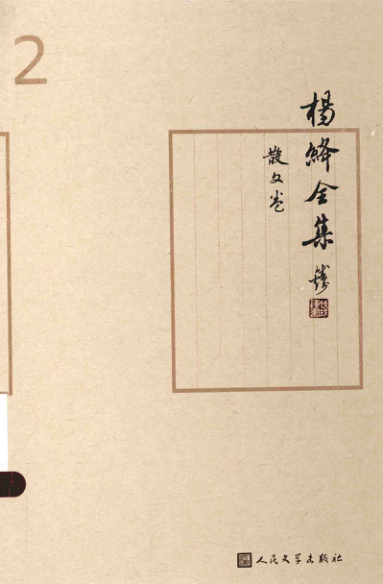 2
杨绛全集
散文卷
人民文学出版社